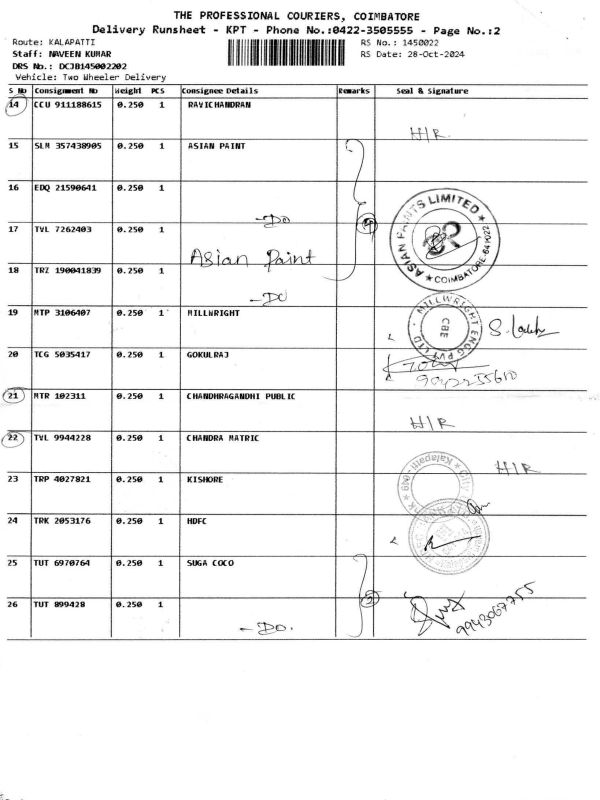 THE PROFESSIONAL COURIERS, COIMBATORE
Delivery Runsheet - KPT - Phone No.:0422-3505555 - Page No.:2
Route: KALAPATTI RS No.: 1450022
Staff: NAVEEN KUMAR RS Date: 28-Oct-2024
DRS No.: DCJB145002202
Vehicle: Two Wheeler Delivery
S No Consignment No Weight PCS Consignee Details Remarks Seal & Signature
14 CCU 911188615 0.250 1 RAVICHANDRAN
H/R.
15 SLM 357438905 0.250 1 ASIAN PAINT
16 EDQ 21590641 0.250 1
- Do
ASIAN PAINTS LIMITED
COIMBATORE-641022
17 TVL 7262403 0.250 1
Asian Paint
18 TRZ 190041839 0.250 1
- Do
19 MTP 3106407 0.250 1 MILLWRIGHT
MILLWRIGHT ENGG PVT LTD
CBE
20 TCG 5035417 0.250 1 GOKULRAJ
21 MTR 102311 0.250 1 CHANDHRAGANDHI PUBLIC
H/R
22 TVL 9944228 0.250 1 CHANDRA MATRIC
H/R
23 TRP 4027821 0.250 1 KISHORE
24 TRK 2053176 0.250 1 HDFC
25 TUT 6970764 0.250 1 SUGA COCO
26 TUT 899428 0.250 1
- Do.
9943067755